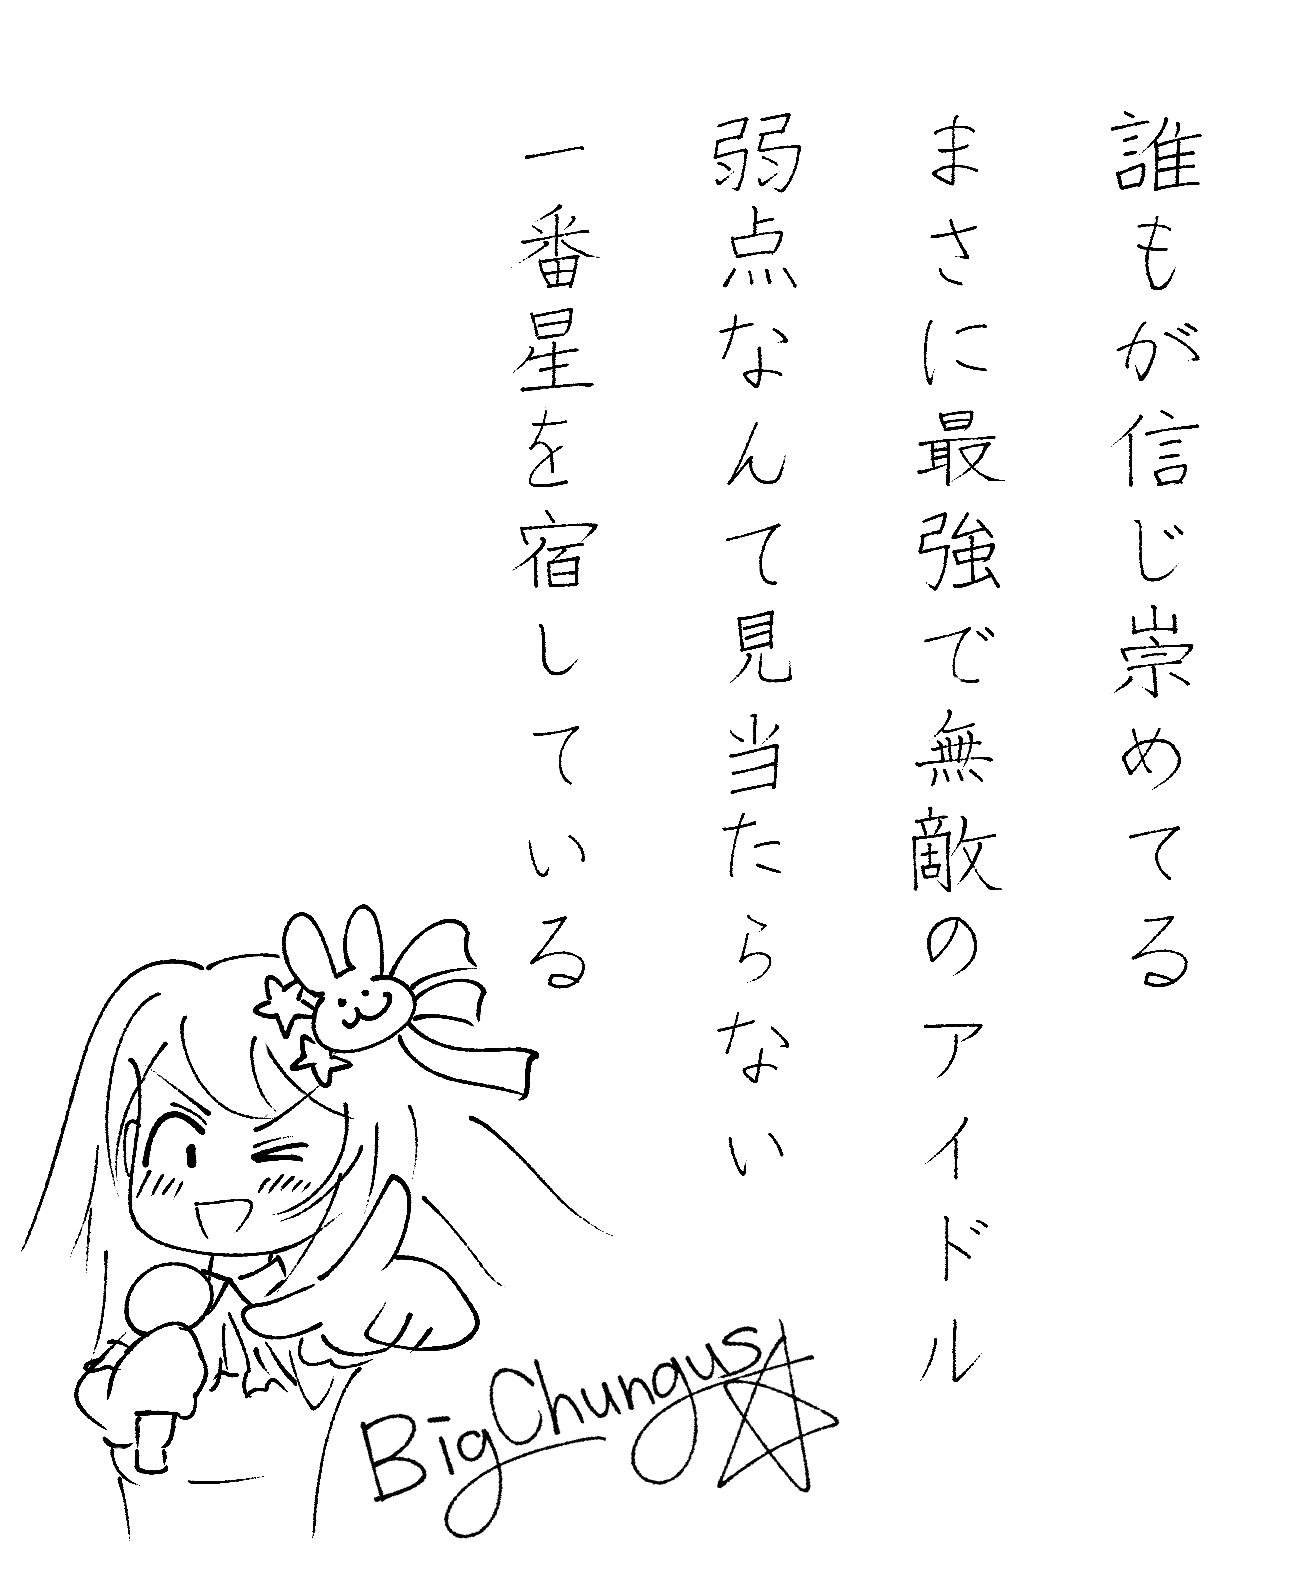 誰もが信じ崇めてる
まさに最強で無敵のアイドル
弱点なんて見当たらない
一番星を宿している
BigChungus